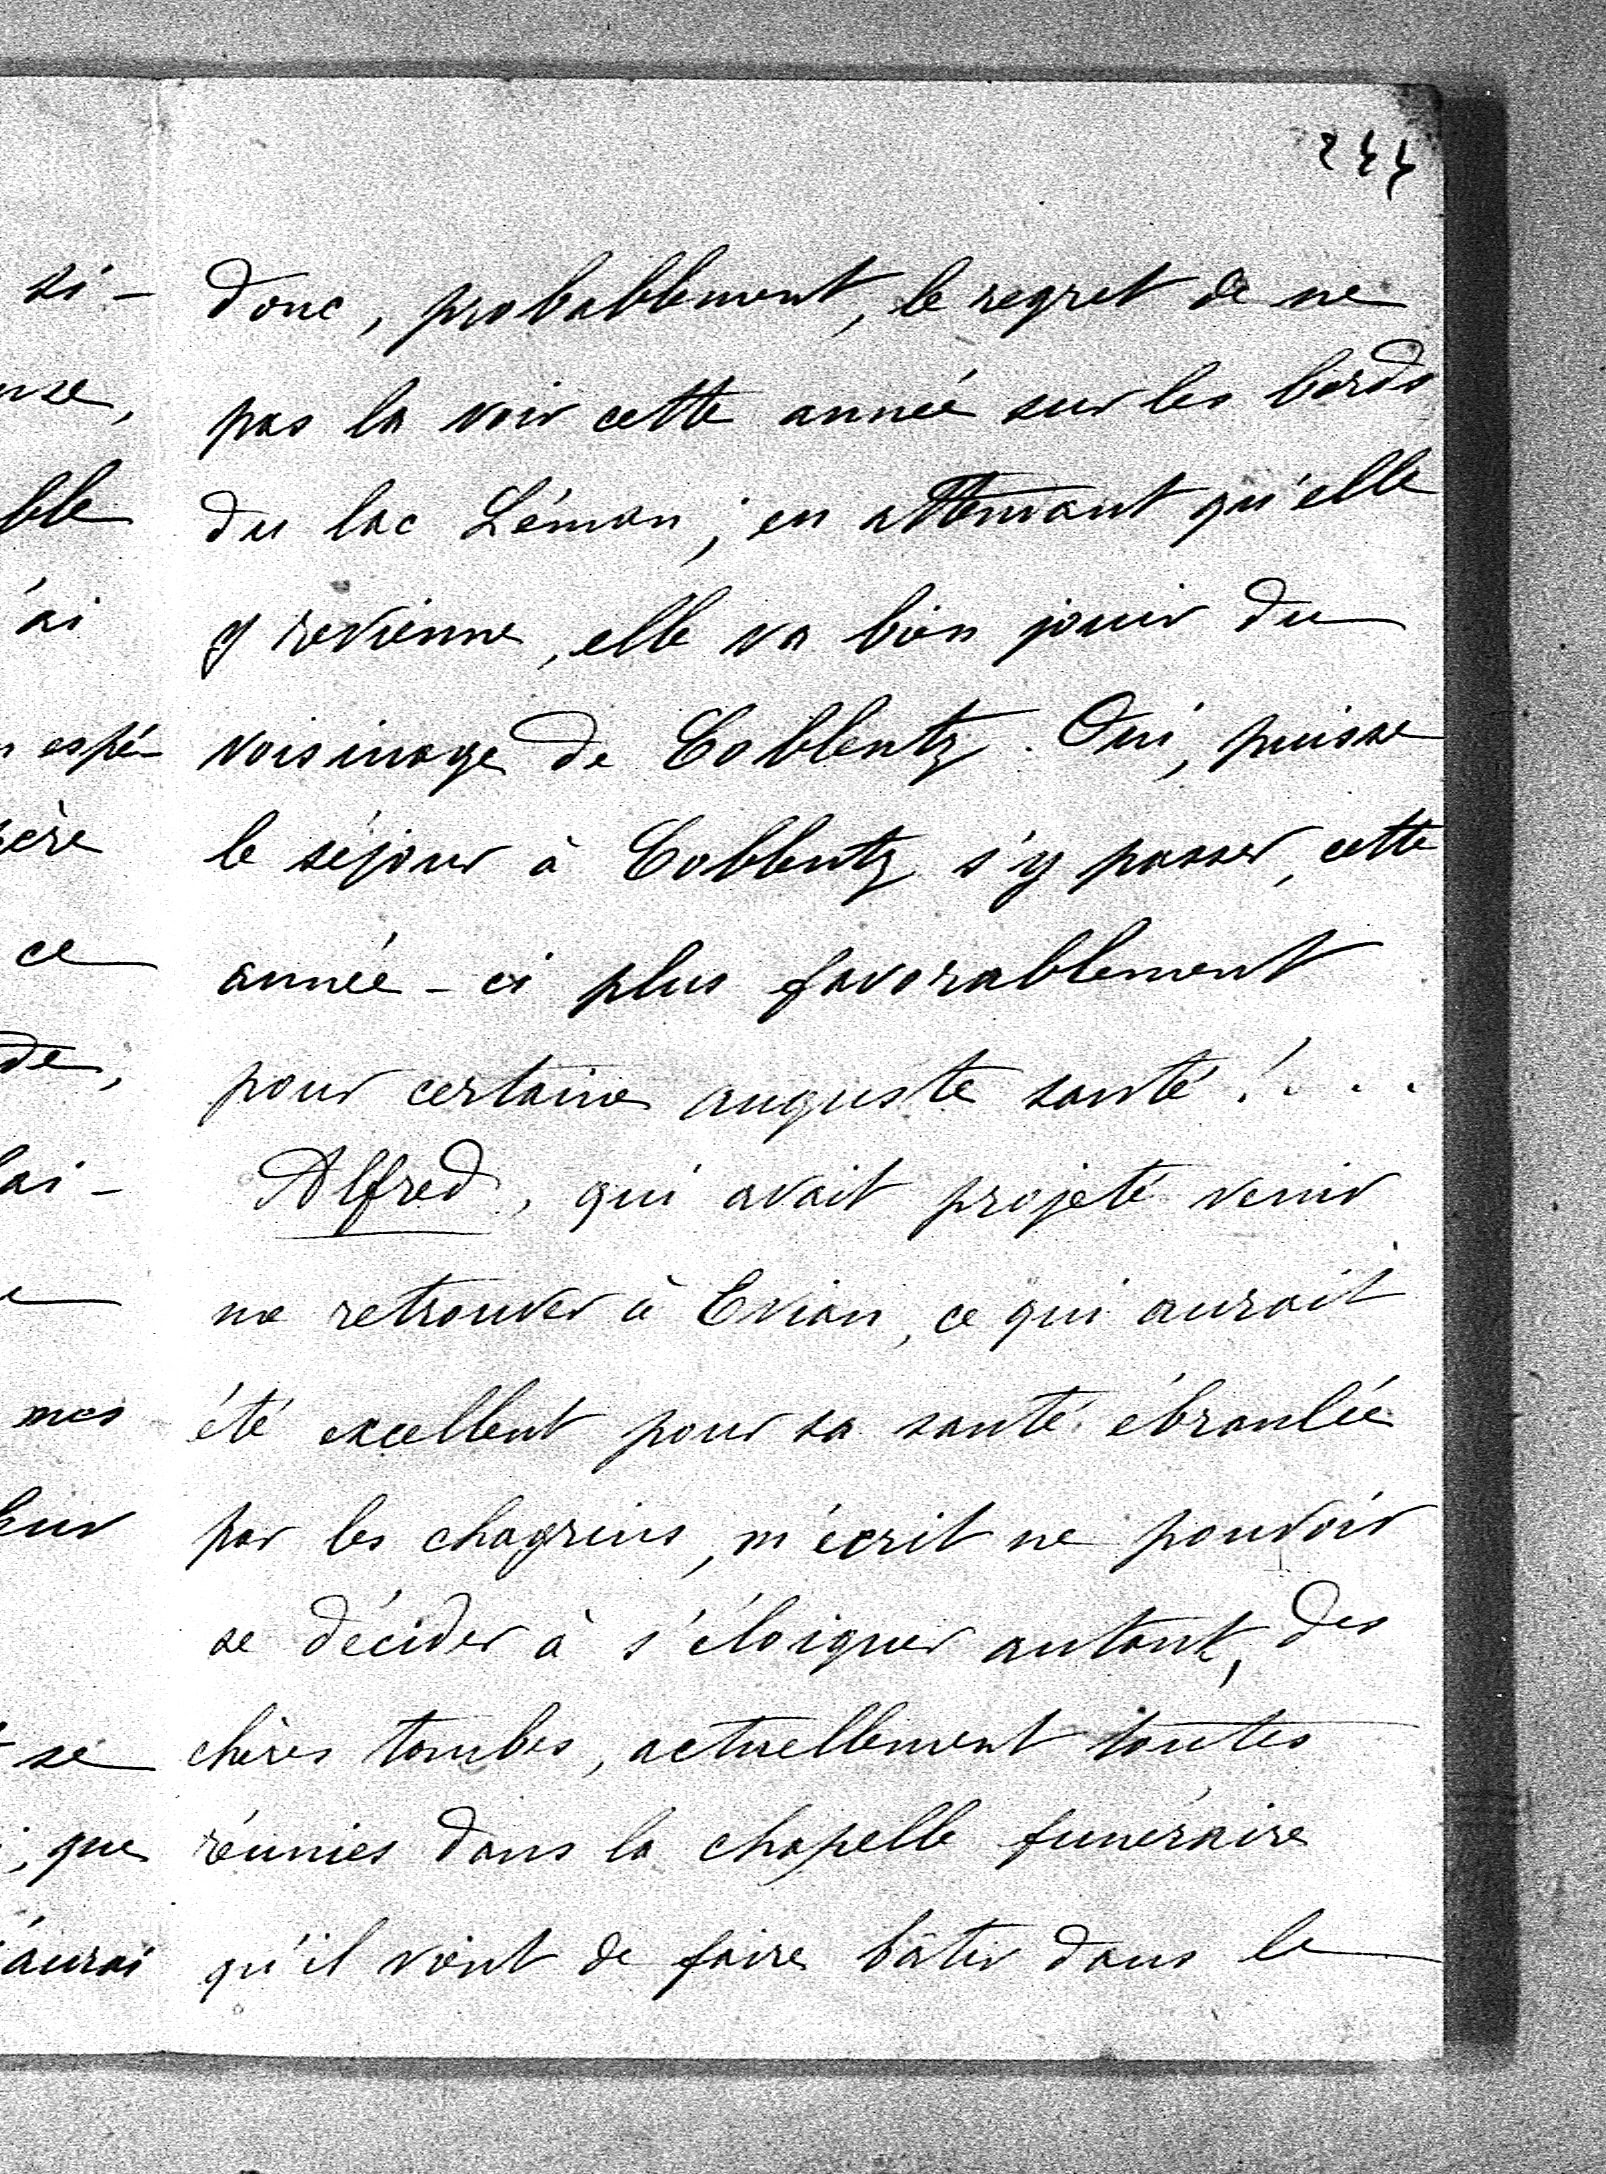 244
donc, probablement, le regret de ne
pas la voir cette année sur les bords
du lac Léman ; en attendant qu'elle
y revienne, elle va bien jouir du
voisinage de Coblentz. Oui, puisse
le séjour à Coblentz s'y passer, cette
année-ci plus favorablement
pour certaine auguste santé ! . . .
Alfred, qui avait projeté venir
me retrouver à Evian, ce qui aurait
été excellent pour sa santé ébranlée
par les chagrins, m'écrit ne pouvoir
se décider à s'éloigner autant, des
chères tombes, actuellement toutes
réunies dans la chapelle funéraire
qu'il vient de faire bâtir dans le
si-
ble
'ai
espé-
ce
de,
lai-
mes
se
; que
aurai